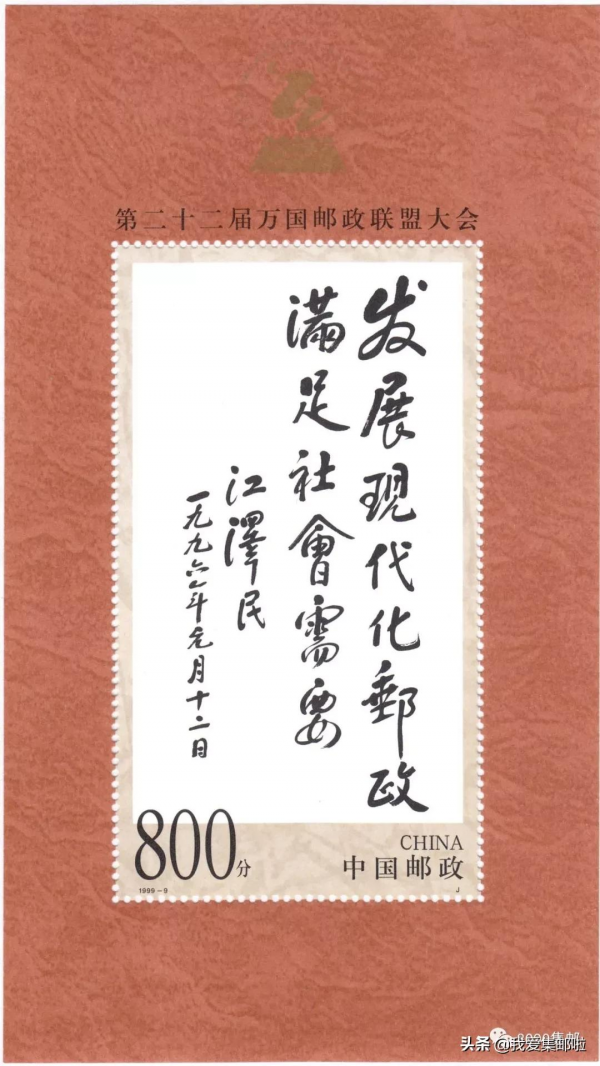 第二十二届万国邮政联盟大会
发展現代化郵政
滿足社會需要
江澤民
一九九六年元月十二日
800分
CHINA
中国邮政
1999-9
J
2020集邮
头条 @我爱集邮啦